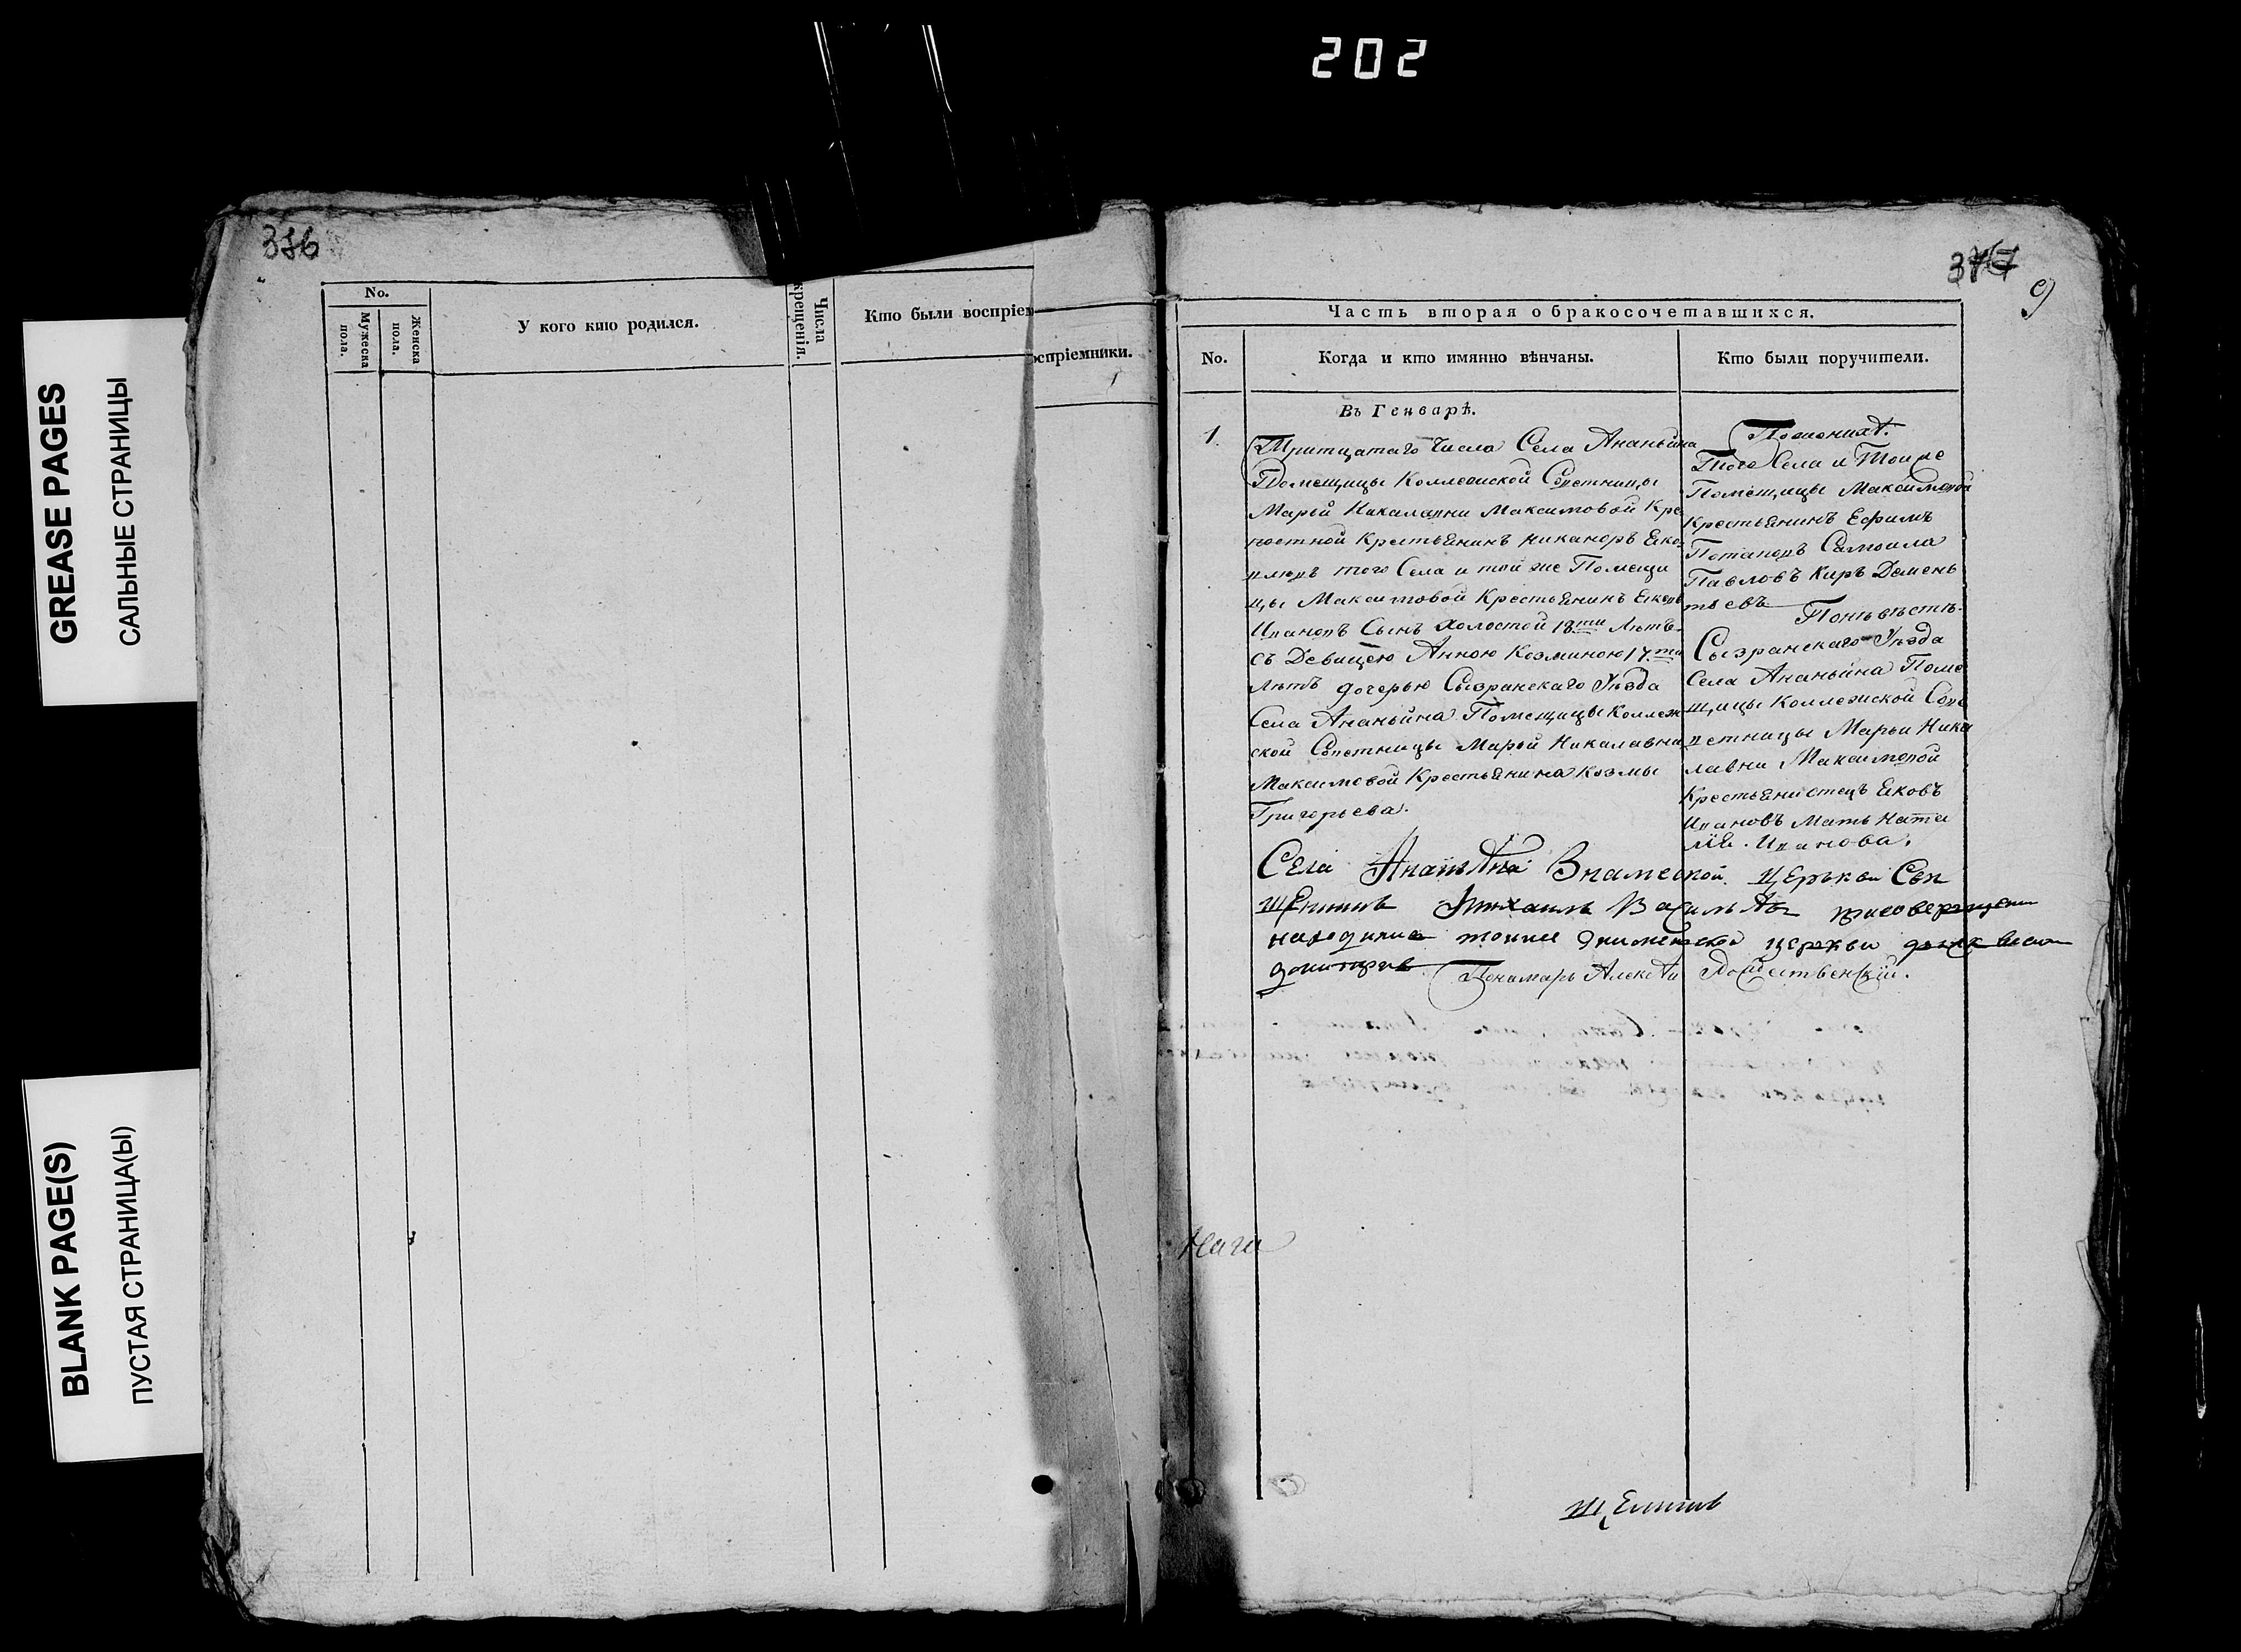 202
GREASE PAGES
САЛЬНЫЕ СТРАНИЦЫ
BLANK PAGE(S)
ПУСТАЯ СТРАНИЦА(Ы)
No.
Мужеска пола.
Женска пола.
У кого кто родился.
Числа крещенія.
Кто были воспріем
оспріемники.
9
Часть вторая о бракосочетавшихся.
No.
Когда и кто имянно вѣнчаны.
Кто были поручители.
Въ Генварѣ.
1.
Тритцатаго числа Села Ананьина
Помещицы Коллежской Советницы
Марьи Никалавни Максимовой Кре
постной Крестьянинъ Никаноръ Яко
влевъ того Села и той же Помещи
цы Максимовой Крестьянинъ Яковъ
Ивановъ Сынъ холостой 18ти Лѣтъ
съ Девицею Анною Козминою 17ти
Лѣтъ дочерью Сызранскаго Уѣзда
Села Ананьина Помещицы Коллеж
ской Советницы Марьи Никалавни
Максимовой Крестьянина Козмы
Григорьева.
По женихѣ.
Того Села и Тоиже
Помещицы Максимовой
Крестьянинъ Ефимъ
Потаповъ Самоила
Павловъ Киръ Демень
тьевъ По невѣстѣ
Сызранскаго Уѣзда
Села Ананьина Поме
щицы Коллежской Сове
тницы Марьи Ника
лавни Максимовой
Крестьяни отецъ Яковъ
Ивановъ Мать Ната
лія Иванова.
Села Знамеской Церькви Свя
Михаилъ
находился тоиже церкви
Пономарь Алексѣи